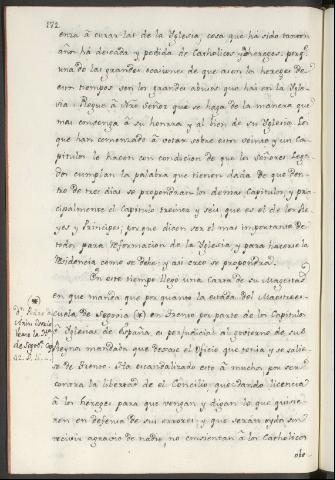 172
enza á curar las de la Yglesia, cosa que há sido tantos
años há deseada y pedida de Catholicos y Hereges, porq.e
una de las grandes ocasiones de que nacen las heregias de
estos tiempos son los grandes abusos que háy en la Ygle-
sia: Plegue á Ntre Señor que se haga de la manera que
mas convenga á su honrra y al bien de su Yglesia. Los
que han comenzado á votar sobre estos veinte y un Ca-
pitulos lo hacen con condicion de que los Señores Lega-
dos cumplan la palabra que tienen dada de que den-
tro de tres dias se propondran los demas Capitulos y prin
cipalmente el Capitulo treinta y seis, que es el de los Re-
yes y Principes; porque dicen ser el mas importante de
todos para Reformacion de la Yglesia y para hacerse la
Residencia como se debe, y asi creo se propondrá.
En este tiempo llegó una Carta de su Magestad
en que manda que por quanto la estada del Maestrees-
cuela de Segovia (*) en Trento por parte de los Capitulos
é Yglesias de España, es perjudicial al govierno de sus
Reynos mandaba que dexase el Oficio que tenia y se salie-
se de Trento. Ha escandalizado esto á muchos por ser
contra la libertad de el Concilio que dando licencia
á los hereges para que vengan y digan lo que quisie-
ren en defensa de sus errores, y que seran oydos sin
recivir agravio de nadie, no consientan á los Catholicos
(*)
de Segov.
obe-